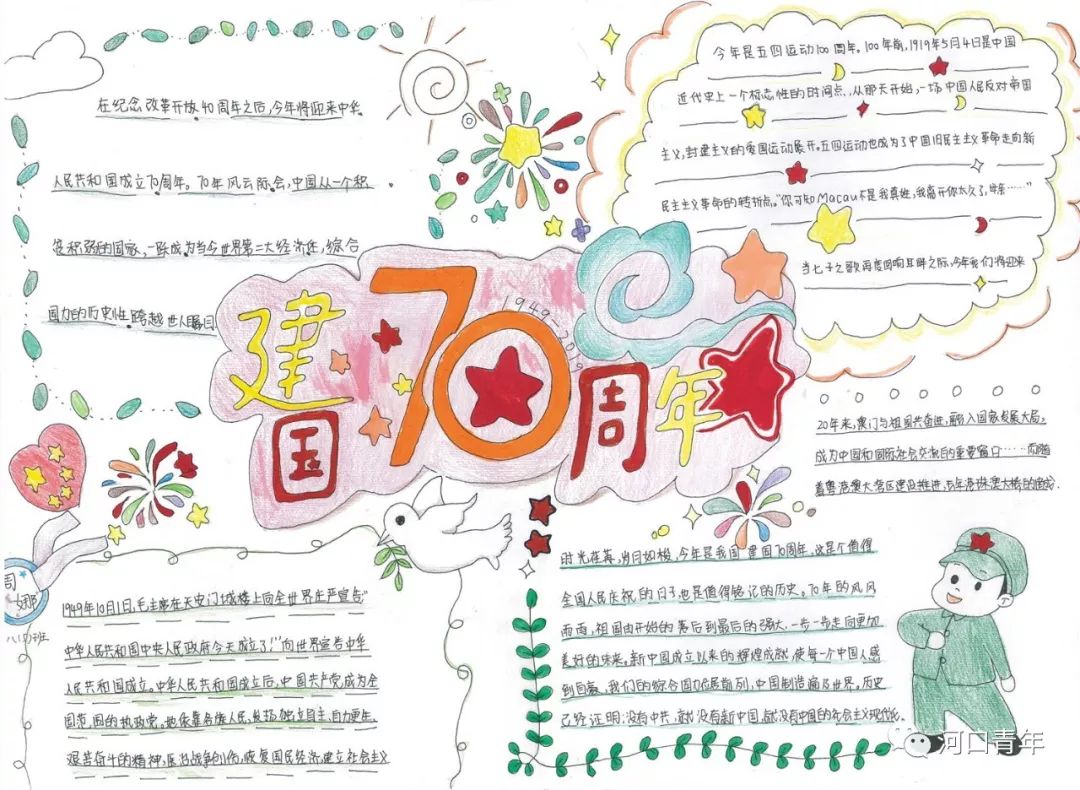 在纪念改革开放40周年之后,今年将迎来中华
人民共和国成立70周年。70年风云际会,中国从一个积
贫积弱的国家,一跃成为当今世界第二大经济体,综合
国力的历史性跨越世人瞩目
今年是五四运动100周年。100年前,1919年5月4日是中国
近代史上一个标志性的时间点,从那天开始,一场中国人民反对帝国
主义,封建主义的爱国运动展开。五四运动也成为了中国旧民主主义革命走向新
民主主义革命的转折点。“你可知Macau不是我真姓,我离开你太久了,母亲……”
当七子之歌再度回响耳畔之际,今年我们将迎来
建国70周年
1949-2019
20年来,澳门与祖国共奋进,融入国家发展大局,
成为中国和国际社会交流的重要窗口……而随
着粤港澳大湾区建设推进,去年港珠澳大桥的建成
周
娜
1949年10月1日,毛主席在天安门城楼上向全世界庄严宣告
中华人民共和国中央人民政府今天成立了!”向世界宣告中华
人民共和国成立。中华人民共和国成立后,中国共产党成为全
国范围的执政党。她依靠各族人民,发扬独立自主,自力更生,
艰苦奋斗的精神,医治战争创伤,恢复国民经济,建立社会主义
时光荏苒,岁月如梭,今年是我国建国70周年,这是个值得
全国人民庆祝的日子也是值得铭记的历史。70年的风风
雨雨,祖国由开始的落后到最后的强大,一步一步走向更加
美好的未来。新中国成立以来的辉煌成就,使每一个中国人感
到自豪。我们的综合国力位居前列,中国制造遍及世界。历史
已经证明:没有中共,就没有新中国,就没有中国的社会主义现代化.
河口青年